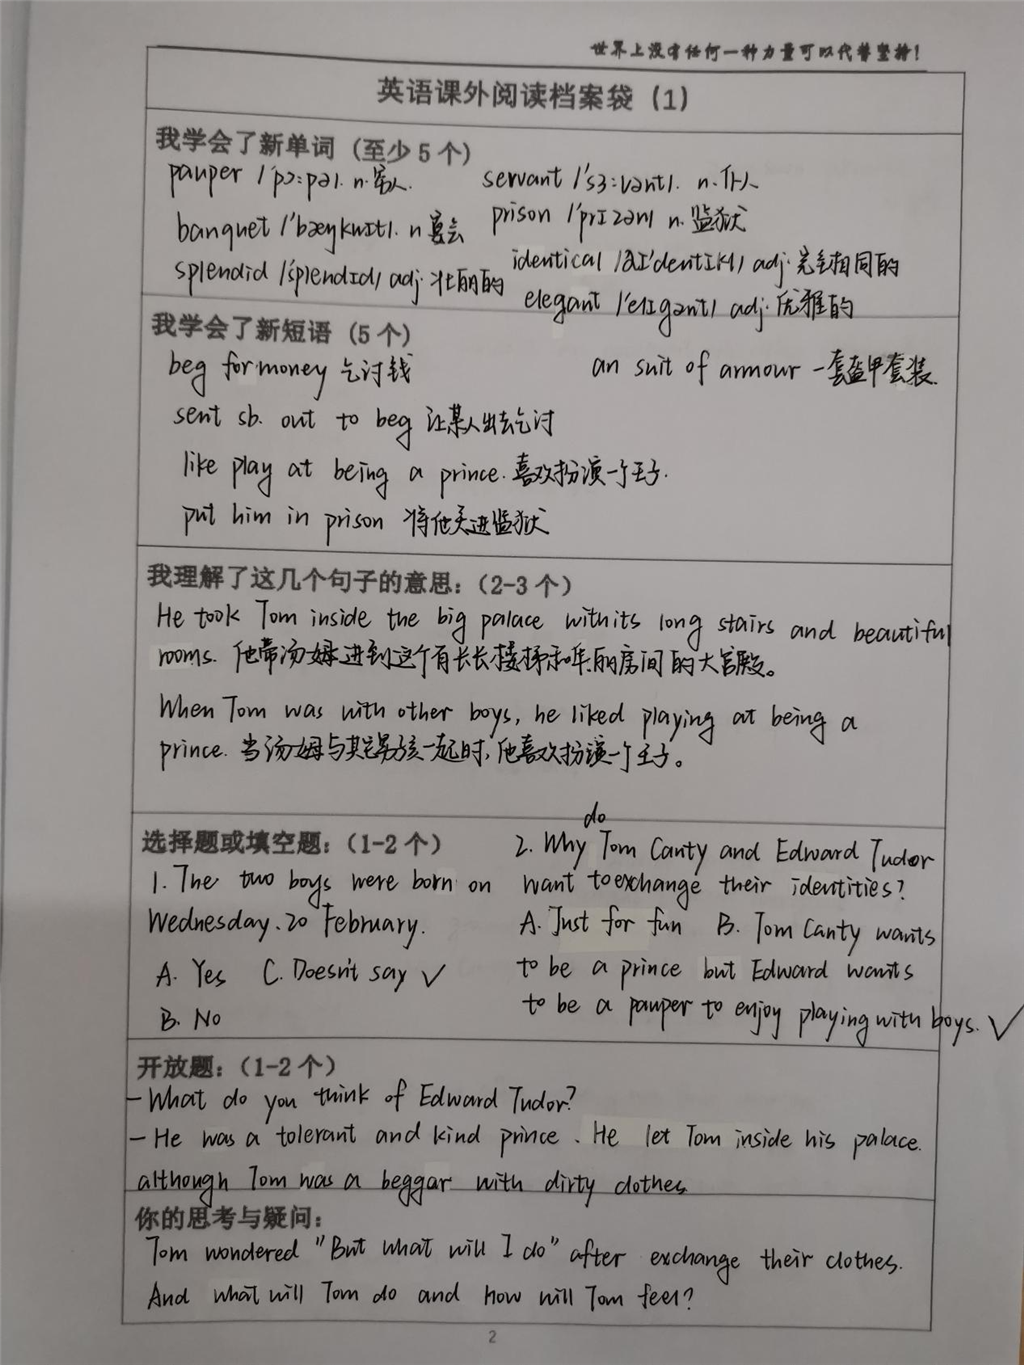 世界上没有任何一种力量可以代替坚持！
英语课外阅读档案袋（1）
我学会了新单词（至少5个）
pauper /'pɔ:pə/. n.穷人. servant /'sɜ:vənt/. n.仆人
banquet /'bæŋkwɪt/. n 宴会 prison /'prɪzən/ n.监狱
splendid /'splendɪd/ adj.壮丽的 identical /aɪ'dentɪkl/ adj.完全相同的
elegant /'elɪgənt/ adj.优雅的
我学会了新短语（5个）
beg for money 乞讨钱 an suit of armour 一套盔甲套装.
sent sb. out to beg 让某人出去乞讨
like play at being a prince.喜欢扮演一个王子.
put him in prison 将他关进监狱
我理解了这几个句子的意思：（2-3个）
He took Tom inside the big palace with its long stairs and beautiful
rooms. 他带汤姆进到这个有长长楼梯和华丽房间的大宫殿。
When Tom was with other boys, he liked playing at being a
prince. 当汤姆与其它男孩一起时,他喜欢扮演一个王子。
选择题或填空题：（1-2个）
1. The two boys were born on
Wednesday、20 February.
A. Yes C. Doesn't say ✓
B. No
do
2. Why Tom Canty and Edward Tudor
want to exchange their identities?
A. Just for fun B. Tom Canty wants
to be a prince but Edward wants
to be a pauper to enjoy playing with boys. ✓
开放题：（1-2个）
- What do you think of Edward Tudor?
- He was a tolerant and kind prince. He let Tom inside his palace.
although Tom was a beggar with dirty clothes
你的思考与疑问：
Tom wondered "But what will I do" after exchange their clothes.
And what will Tom do and how will Tom feel?
2